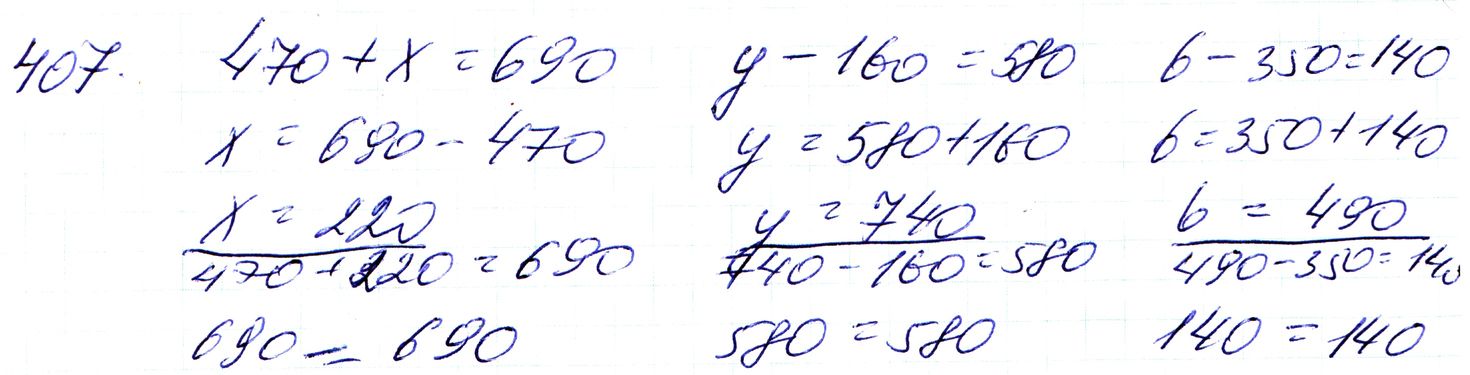 407. 470 + x = 690 y - 160 = 580 b - 350 = 140
x = 690 - 470 y = 580 + 160 b = 350 + 140
x = 220 y = 740 b = 490
470 + 220 = 690 740 - 160 = 580 490 - 350 = 140
690 = 690 580 = 580 140 = 140